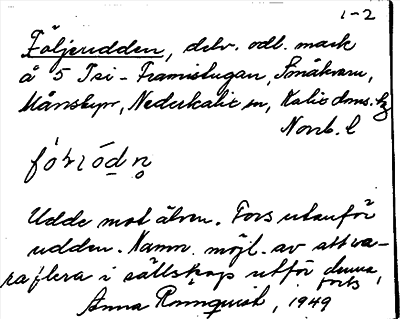 1-2
Följerudden, delv. odl. mark
å 5 Isi-Framistugan, Småkvarn,
Månsbyn, Nederkalix sn, Kalix dms. hg
Norrb. l
Udde mot älven. Fors utanför
udden. Namn. möjl. av att va-
ra flera i sällskap utför denna
fors,
Anna Rönnquist, 1949